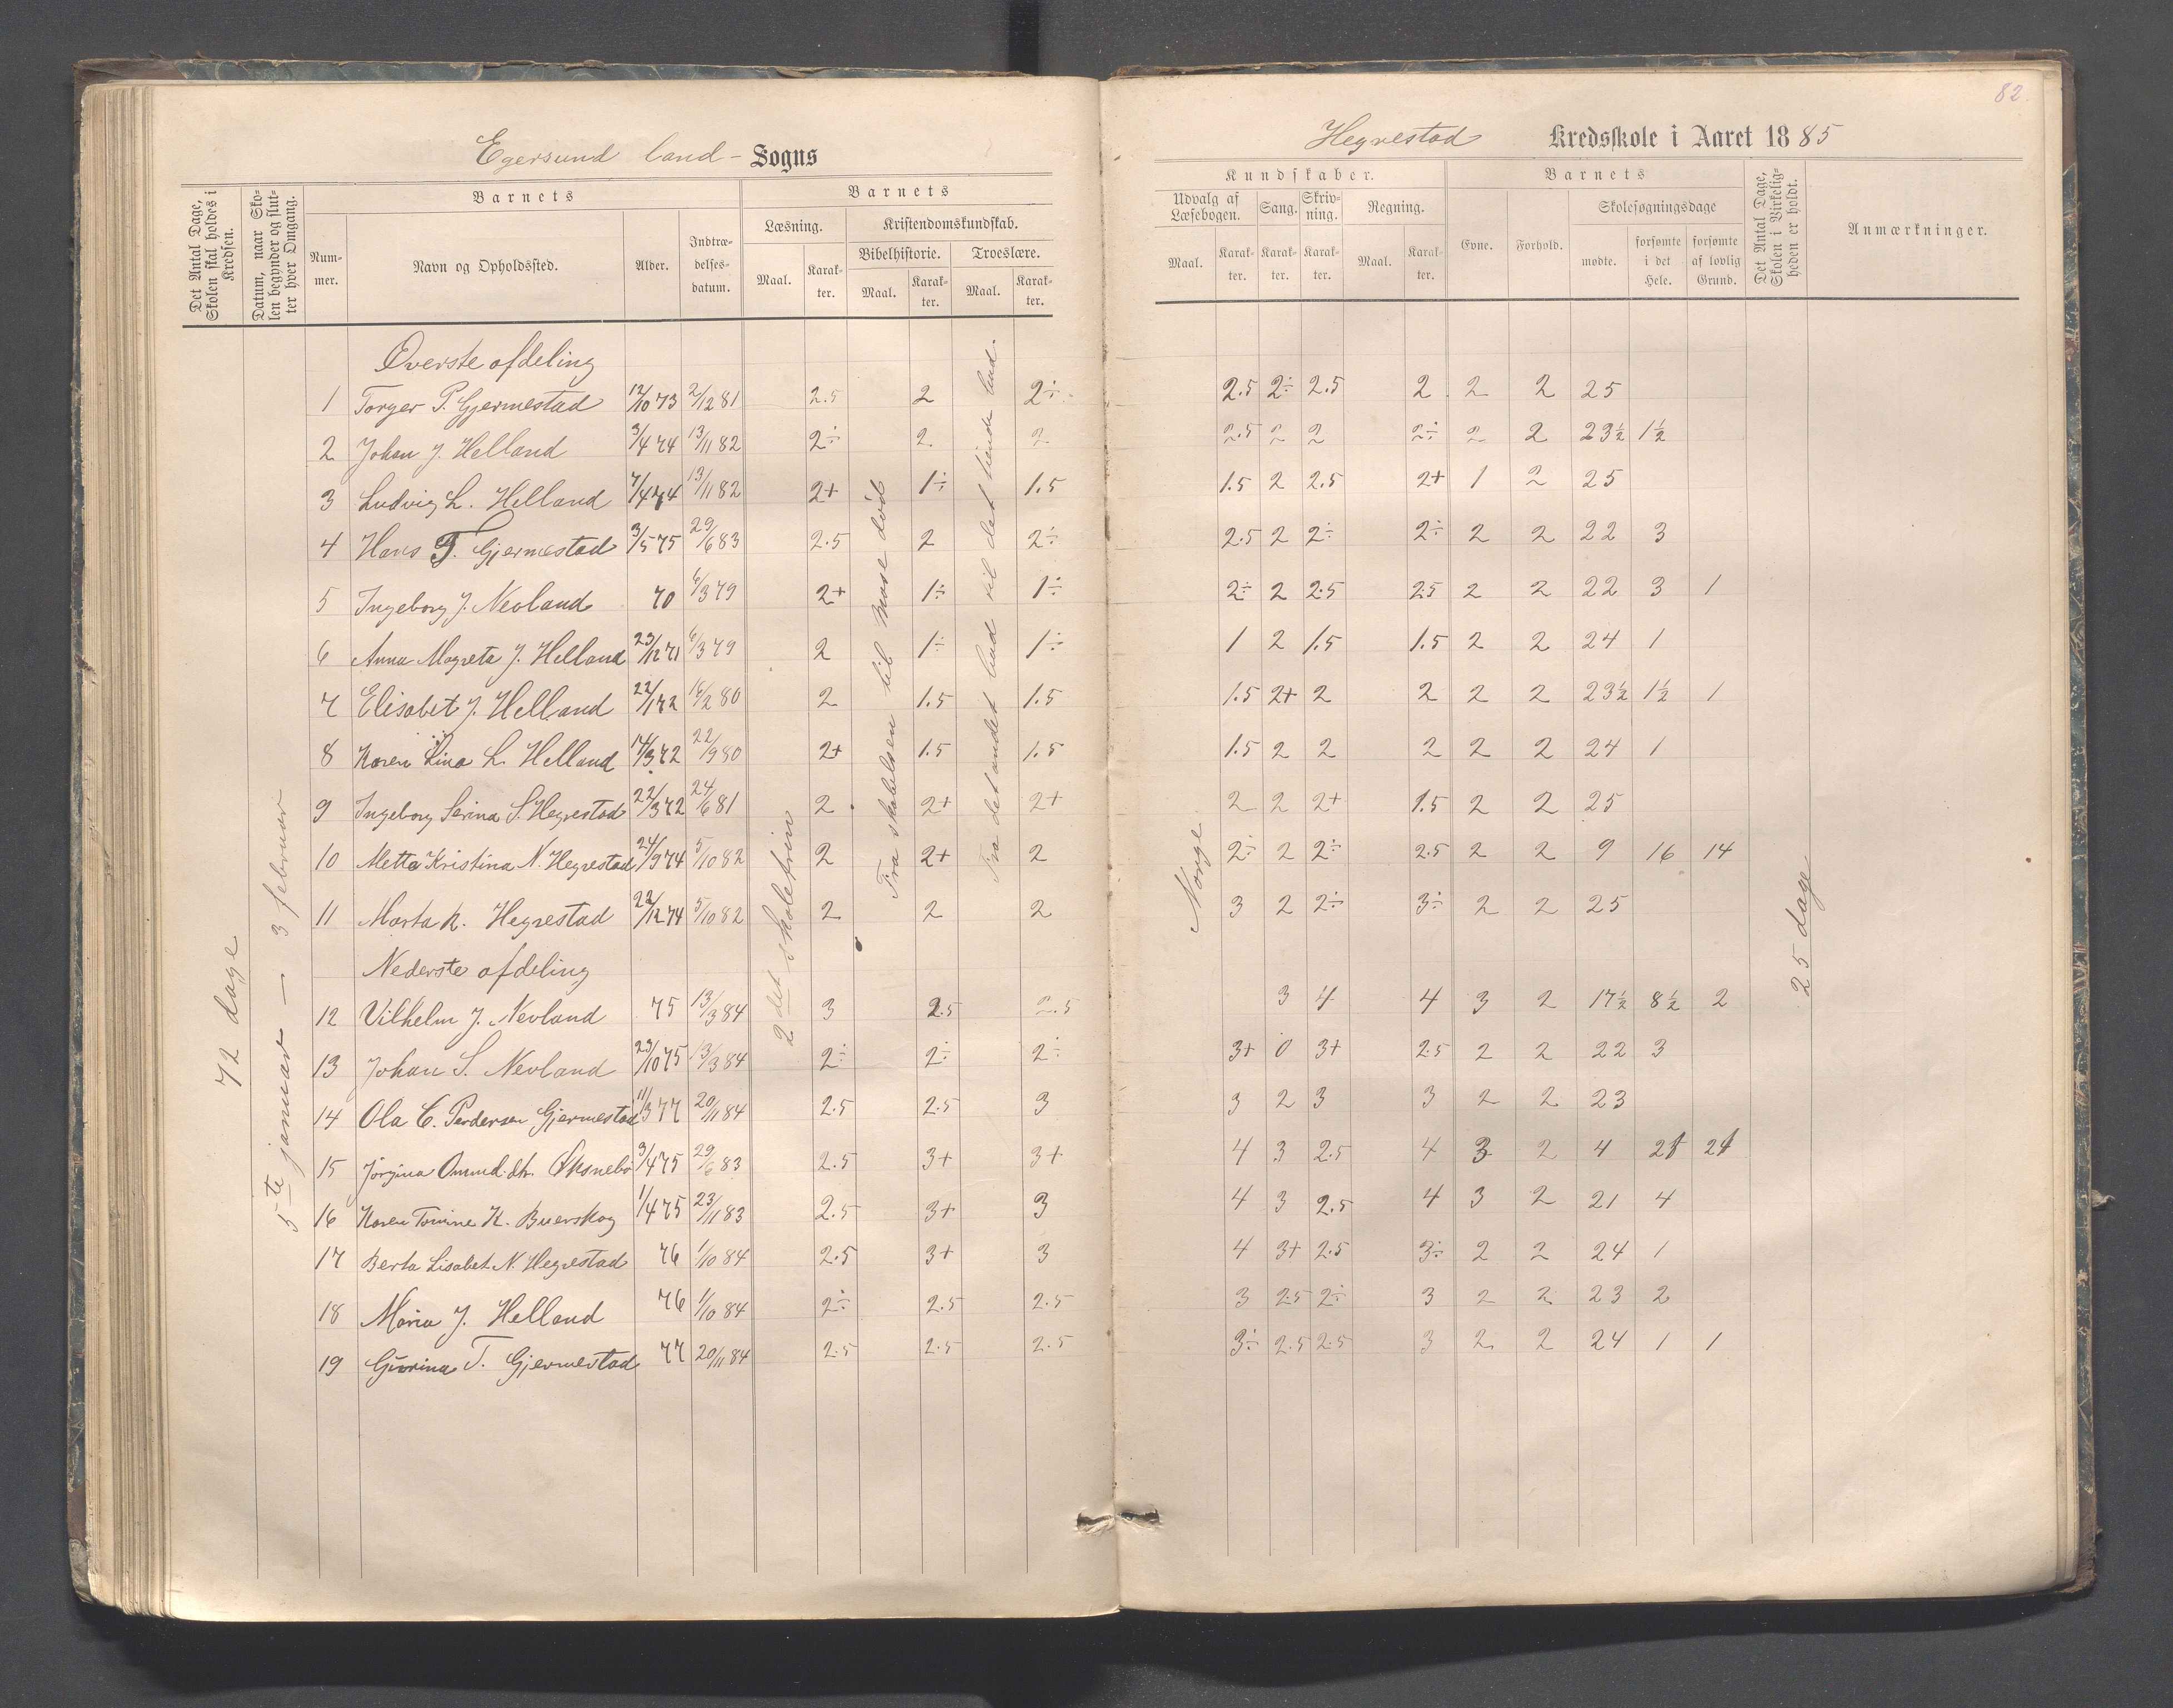 82.
Egersund land - Sogns
Hegrestad Kredsskole i Aaret 1885
Det Antal Dage, Skolen skal holdes i Kredsen.
Datum, naar Skolen begynder og slutter hver Omgang.
Barnets
Nummer.
Navn og Opholdssted.
Alder.
Indtrædelsesdatum.
Barnets
Læsning.
Maal. Karakter.
Kristendomskundskab.
Bibelhistorie. Troeslære.
Maal. Karakter. Maal. Karakter.
Kundskaber.
Udvalg af Læsebogen. Sang. Skrivning. Regning.
Maal. Karakter. Karakter. Karakter. Maal. Karakter.
Barnets
Evne. Forhold.
Skolesøgningsdage
mødte. forsømte i det Hele. forsømte af lovlig Grund.
Det Antal Dage, Skolen i Virkeligheden er holdt.
Anmærkninger.
72 dage
5te januar — 3 februar
2det skoletrin
Fra skabelsen til Mose død
Fra det andet bud til det tiende bud.
Norge
25 dage
Øverste afdeling
1 Torger P. Gjermestad 12/10 73 2/12 81 2.5 2 2÷ 2.5 2÷ 2.5 2 2 2 25
2 Johan J. Helland 3/4 74 13/11 82 2÷ 2 2 2.5 2 2 2÷ 2 2 23½ 1½
3 Ludvig L. Helland 7/4 74 13/11 82 2+ 1÷ 1.5 1.5 2 2.5 2+ 1 2 25
4 Hans T. Gjermestad 3/5 75 29/6 83 2.5 2 2÷ 2.5 2 2÷ 2÷ 2 2 22 3
5 Ingeborg J. Nevland 70 6/3 79 2+ 1÷ 1÷ 2÷ 2 2.5 2.5 2 2 22 3 1
6 Anna Magreta J. Helland 23/12 71 6/3 79 2 1÷ 1÷ 1 2 1.5 1.5 2 2 24 1
7 Elisabet J. Helland 22/1 72 16/2 80 2 1.5 1.5 1.5 2+ 2 2 2 2 23½ 1½ 1
8 Karen Lina L. Helland 14/3 72 22/9 80 2+ 1.5 1.5 1.5 2 2 2 2 2 24 1
9 Ingeborg Serina S. Hegrestad 22/3 72 24/6 81 2 2+ 2+ 2 2 2+ 1.5 2 2 25
10 Metta Kristina N. Hegrestad 24/9 74 5/10 82 2 2+ 2 2÷ 2 2÷ 2.5 2 2 9 16 14
11 Marta K. Hegrestad 22/12 74 5/10 82 2 2 2 3 2 2÷ 3÷ 2 2 25
Nederste afdeling
12 Vilhelm J. Nevland 75 13/3 84 3 2.5 2.5 3 4 4 3 2 17½ 8½ 2
13 Johan S. Nevland 23/10 75 13/3 84 2÷ 2÷ 2÷ 3+ 0 3+ 2.5 2 2 22 3
14 Ola C. Pedersen Gjermestad 11/3 77 20/11 84 2.5 2.5 3 3 2 3 3 2 2 23
15 Jørgina Omund.dtr. 3/4 75 29/6 83 2.5 3+ 3+ 4 3 2.5 4 3 2 4 21 21
16 Karen Tomine K. Buerskog 1/4 75 23/11 83 2.5 3+ 3 4 3 2.5 4 3 2 21 4
17 Berta Lisabet N. Hegrestad 76 1/10 84 2.5 3+ 3 4 3+ 2.5 3÷ 2 2 24 1
18 Maria J. Helland 76 1/10 84 2÷ 2.5 2.5 3 2.5 2÷ 3 2 2 23 2
19 Gurina T. Gjermestad 77 20/11 84 2.5 2.5 2.5 3÷ 2.5 2.5 3 2 2 24 1 1